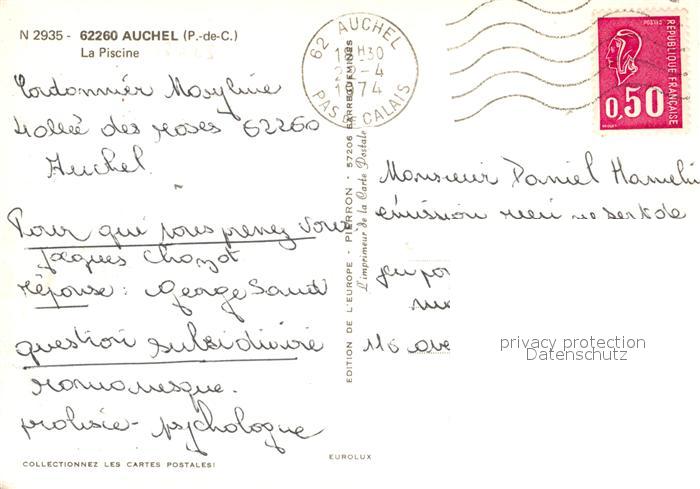 N 2935 - 62260 AUCHEL (P.-de-C.)
La Piscine
Cordonnier Maryline
4 allée des roses 62260
Auchel.
Pour qui vous prenez vous
Jacques Chazot
réponse : George Sand
question subsidiaire
romanesque.
psychologue
COLLECTIONNEZ LES CARTES POSTALES!
EDITION DE L'EUROPE - PIERRON - 57206 SARREGUEMINES
L'imprimeur de la Carte Postale
EUROLUX
62 AUCHEL
H30
-4
1974
PAS DE CALAIS
POSTES
REPUBLIQUE FRANÇAISE
0,50
Monsieur Daniel Hameli
émission
jeu
116 ave
privacy protection
Datenschutz